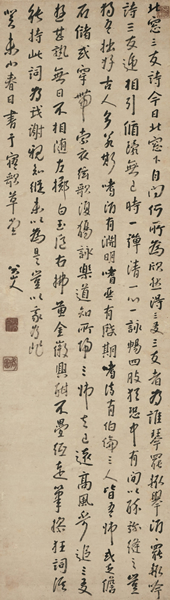 北窗三友詩今日北窗下自問何所為欣然得三友三友者為誰琴罷輒舉酒酒罷輒吟
詩三友遞相引循環無已時一彈清一心一詠暢四肢猶恐中有間以醉彌縫之豈
獨拙好古人多若斯嗜酒有淵明嗜琴有啟期嗜詩有伯倫三人皆吾師或乏儋
石儲或穿帶索衣弦歌復觴詠樂道知所歸三師去已遠高風不可追三友
遊甚熟無日不相隨左擲白玉卮右拂黃金徽興酣不疊紙走筆操狂詞誰
能持此詞為我謝親知縱未以為是豈以我為非
癸未小春日書于寤歌草堂 八大山人